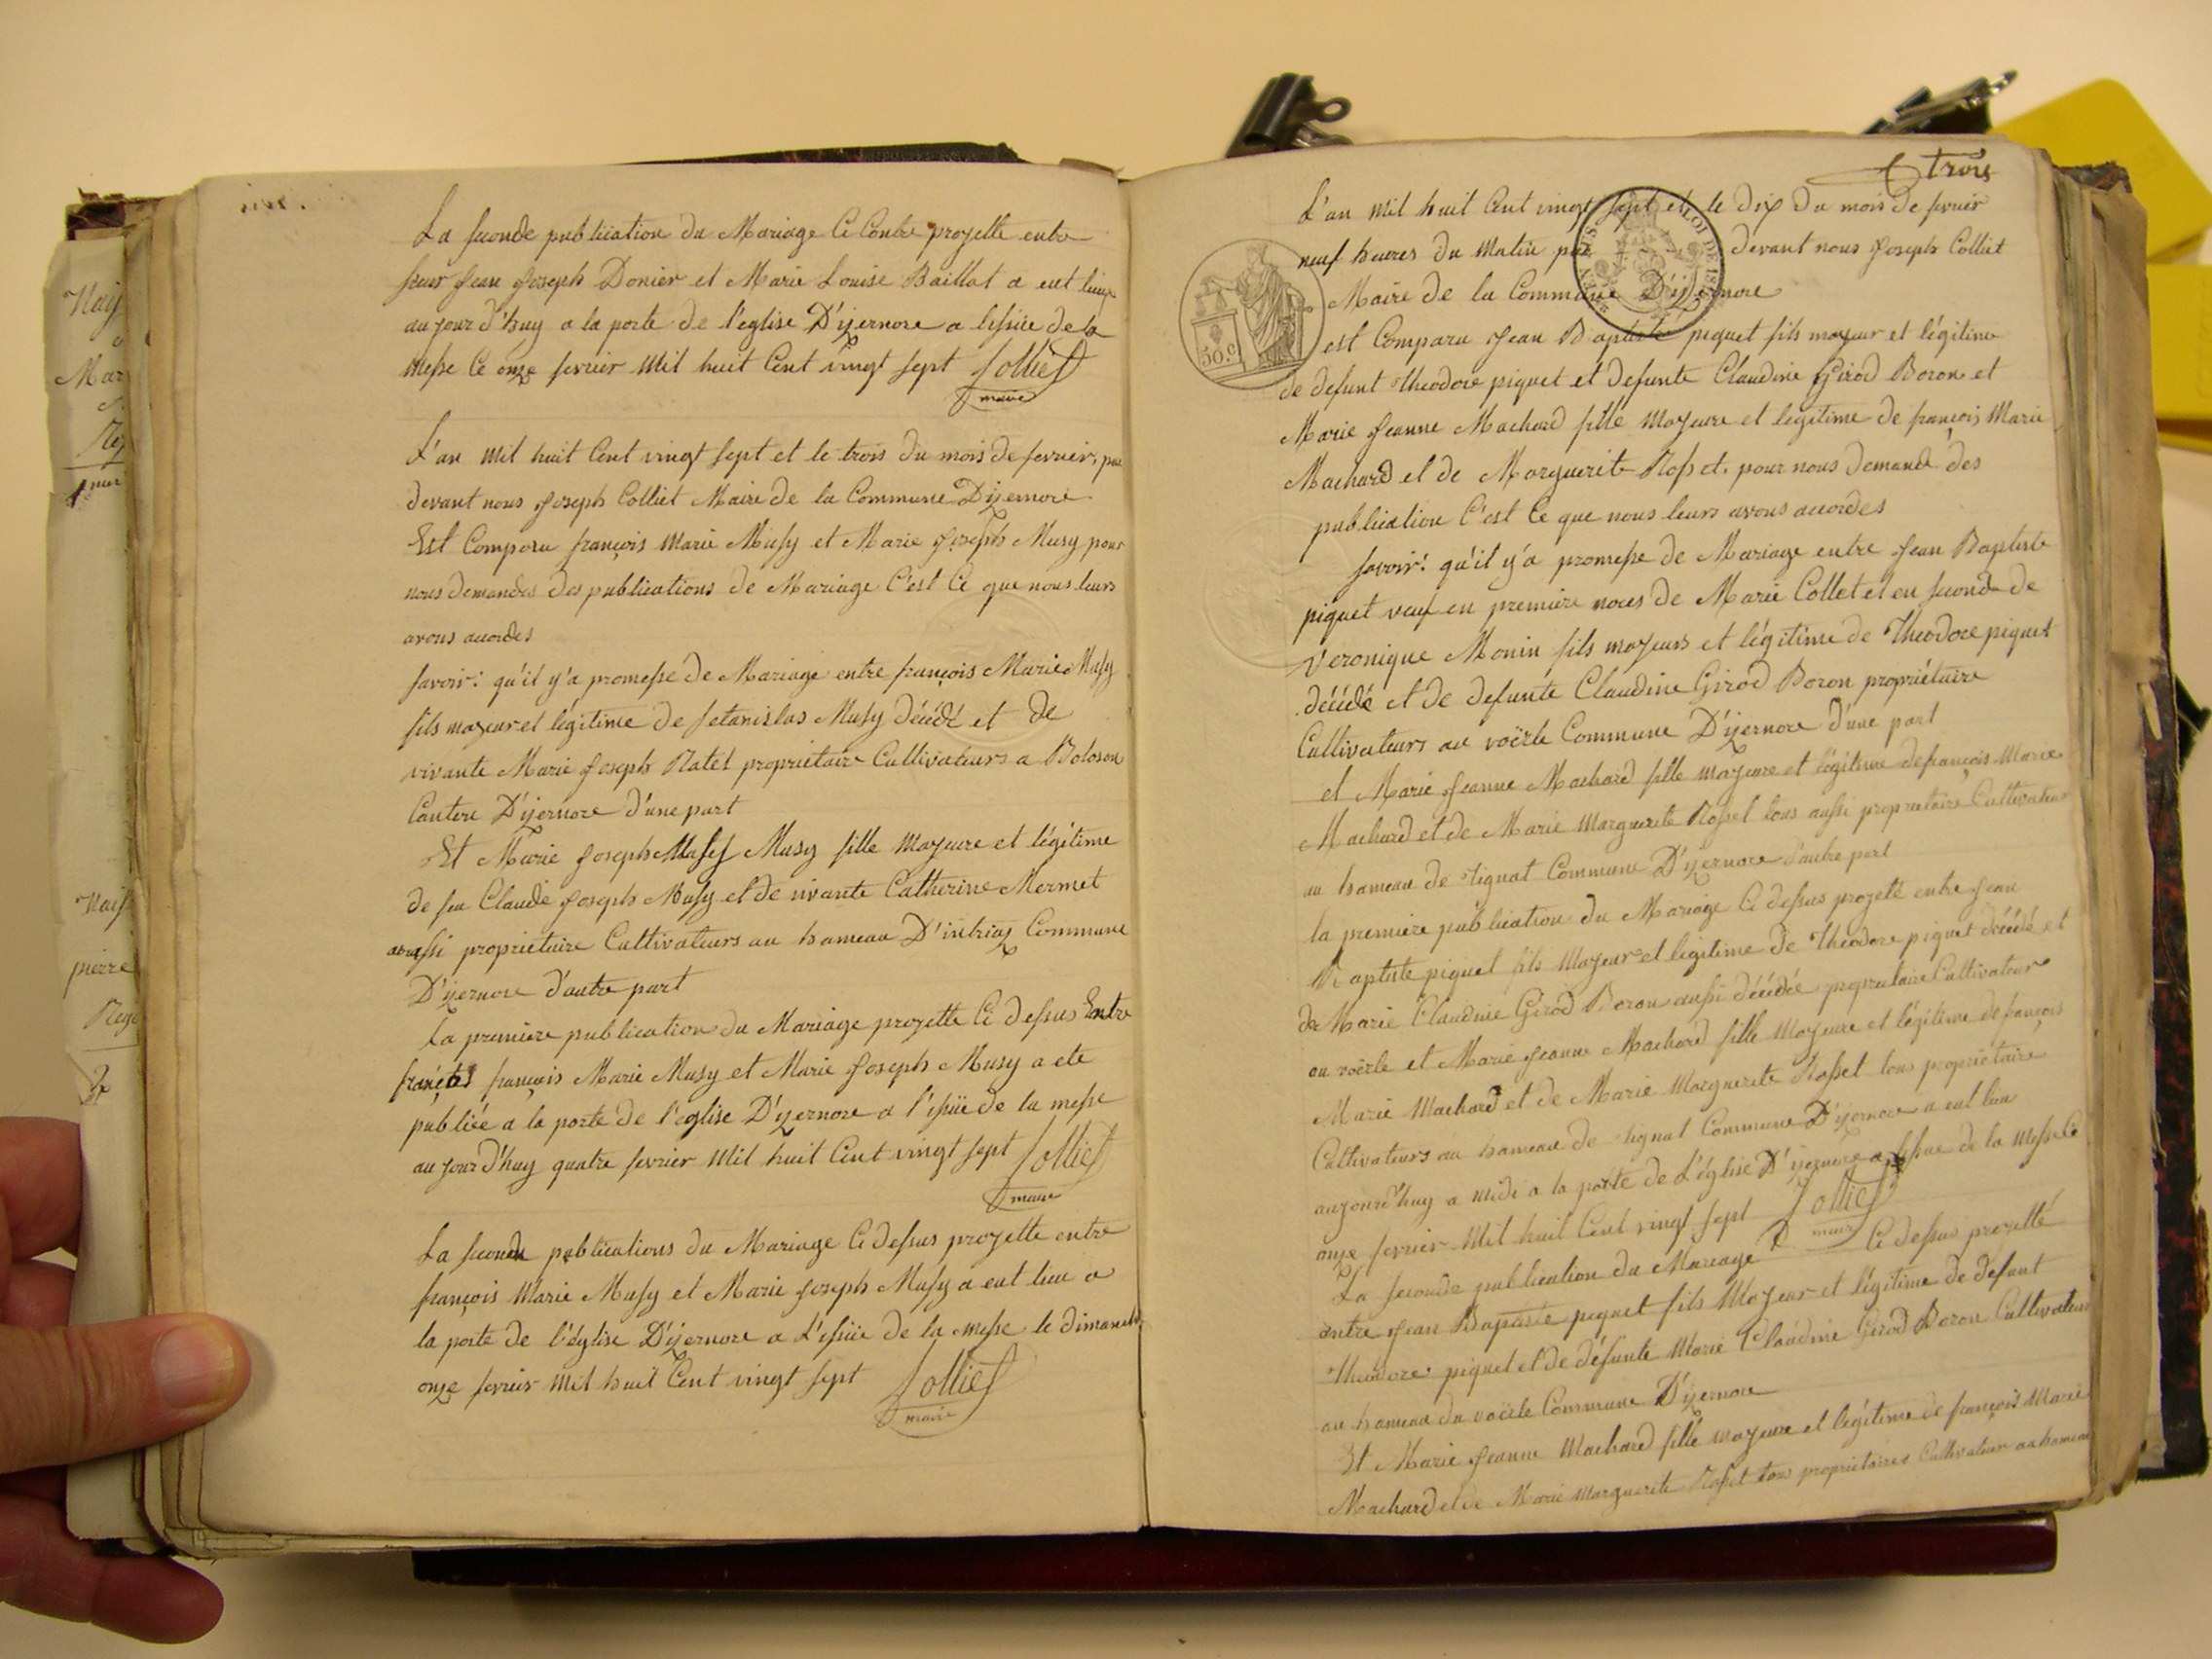 Nais
Mar
Reg
1mier
Nais
pierre
Reg
La seconde publication du Mariage Ci Contre projetté entre
sieur Jean Joseph Donier et Marie Louise Baillat a eut lieux
aujourd'huy a la porte de l'eglise D'izernore a l'issüe de la
messe le onze fevrier Mil huit Cent vingt sept Colliet
maire
L'an Mil huit Cent vingt sept et le trois du mois de fevrier, par
devant nous Joseph Colliet Maire de la Commune D'izernore
Est Comparu françois Marie Musy et Marie Joseph Musy pour
nous demandés des publications de Mariage C'est Ce que nous leurs
avons acordes
Savoir: qu'il y'a promesse de Mariage entre françois Marie Musy
fils majeur et légitime de Setanislas Musy décédé et de
vivante Marie Joseph Ratel propriétaire Cultivateurs a Boloson
Canton D'izernore d'une part
Et Marie Joseph Musy fille Majeure et légitime
de feu Claude Joseph Musy et de vivante Catherine Mermet
aussi propriétaire Cultivateurs au hameau D'intriaz Commune
D'izernore d'autre part
La premiere publication du Mariage projetté Ci dessus Entre
françois Marie Musy et Marie Joseph Musy a eté
publiée a la porte de l'église D'izernore a l'issüe de la messe
aujourd'huy quatre fevrier Mil huit Cent vingt sept Colliet
maire
La seconde publications du Mariage Ci dessus projetté entre
françois Marie Musy et Marie Joseph Musy a eut lieu a
la porte de l'église D'izernore a L'issüe de la messe le dimanche
onze fevrier Mil huit Cent vingt sept Colliet
maire
trois
L'an Mil huit Cent vingt sept et le dix du mois de fevrier
neuf heures du Matin par devant nous Joseph Colliet
Maire de la Commune D'izernore
30 c
LOI DE
est Comparu Jean Baptiste piquet fils majeur et légitime
de defunt Theodore piquet et defunte Claudine Girod Boron et
Marie Jeanne Machard fille Majeure et legitime de françois Marie
Machard et de Marguerite Rosset. pour nous demandé des
publication C'est Ce que nous leurs avons acordes
Savoir: qu'il y'a promesse de Mariage entre Jean Baptiste
piquet veuf en premiere noces de Marie Collet et en seconde de
Veronique Monin fils majeurs et légitime de Theodore piquet
décédé et de defunte Claudine Girod Boron propriétaire
Cultivateurs au voërle Commune D'izernore d'une part
et Marie Jeanne Machard fille majeure et légitime de françois Marie
Machard et de Marie Marguerite Rosset tous aussi proprietaire Cultivateur
au hameau de tignat Commune D'izernore d'autre part
la premiere publication du Mariage Ci dessus projeté entre Jean
Baptiste piquet fils Majeur et legitime de Théodore piquet décédé et
de Marie Claudine Girod Boron aussi décédée propriétaire Cultivateur
au voërle et Marie Jeanne Machard fille Majeure et légitime de françois
Marie Machard et de Marie Marguerite Rosset tous propriétaire
Cultivateurs au hameau de tignat Commune D'izernore a eut lieu
aujourd'huy a midi a la porte de L'église D'izernore a l'issue de la Messe le
onze fevrier Mil huit Cent vingt sept Colliet
maire
La seconde publication du Mariage Ci dessus projetté
entre Jean Baptiste piquet fils Majeur et légitime de defunt
Theodore piquet et de défunte Marie Claudine Girod Boron Cultivateur
au hameau du voërle Commune D'izernore
Et Marie Jeanne Machard fille majeure et légitime de françois Marie
Machard et de Marie Marguerite Rosset tous propriétaires Cultivateur au hameau